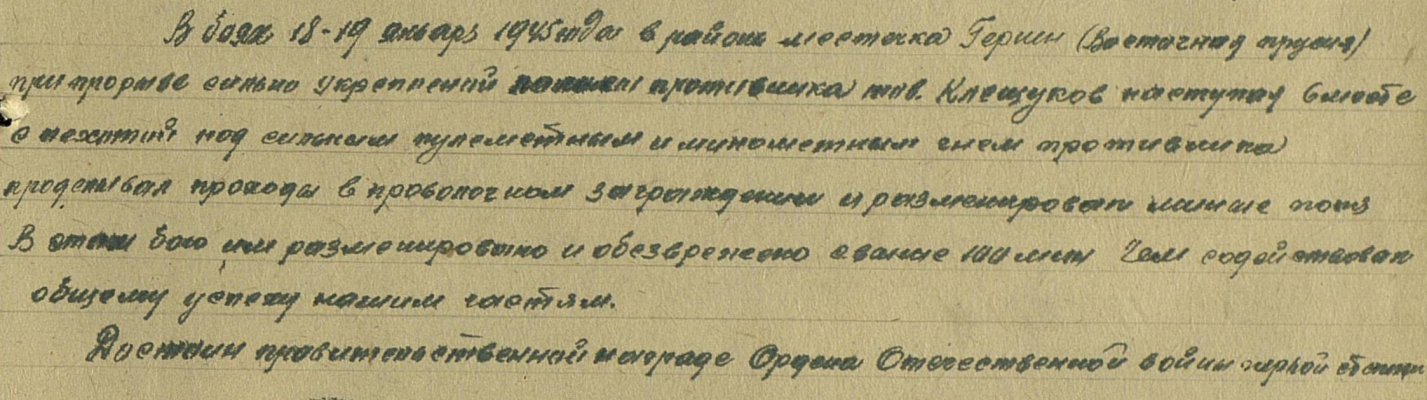 В боях 18-19 январь 1945 года в районе местечка Герин (Восточная пруссия)
при прорыве сильно укрепленой противника тов. Клещуков наступая вместе
с пехотой под сильным пулеметным и минометным огнем противника
проделывал проходы в проволочном заграждении и разменировал минные поля
В этом бою им разменировано и обезврежено свыше 100 мин Чем содействовал
общему успеху нашим частям.
Достоин правительственной награде Ордена Отечественной войны первой степени